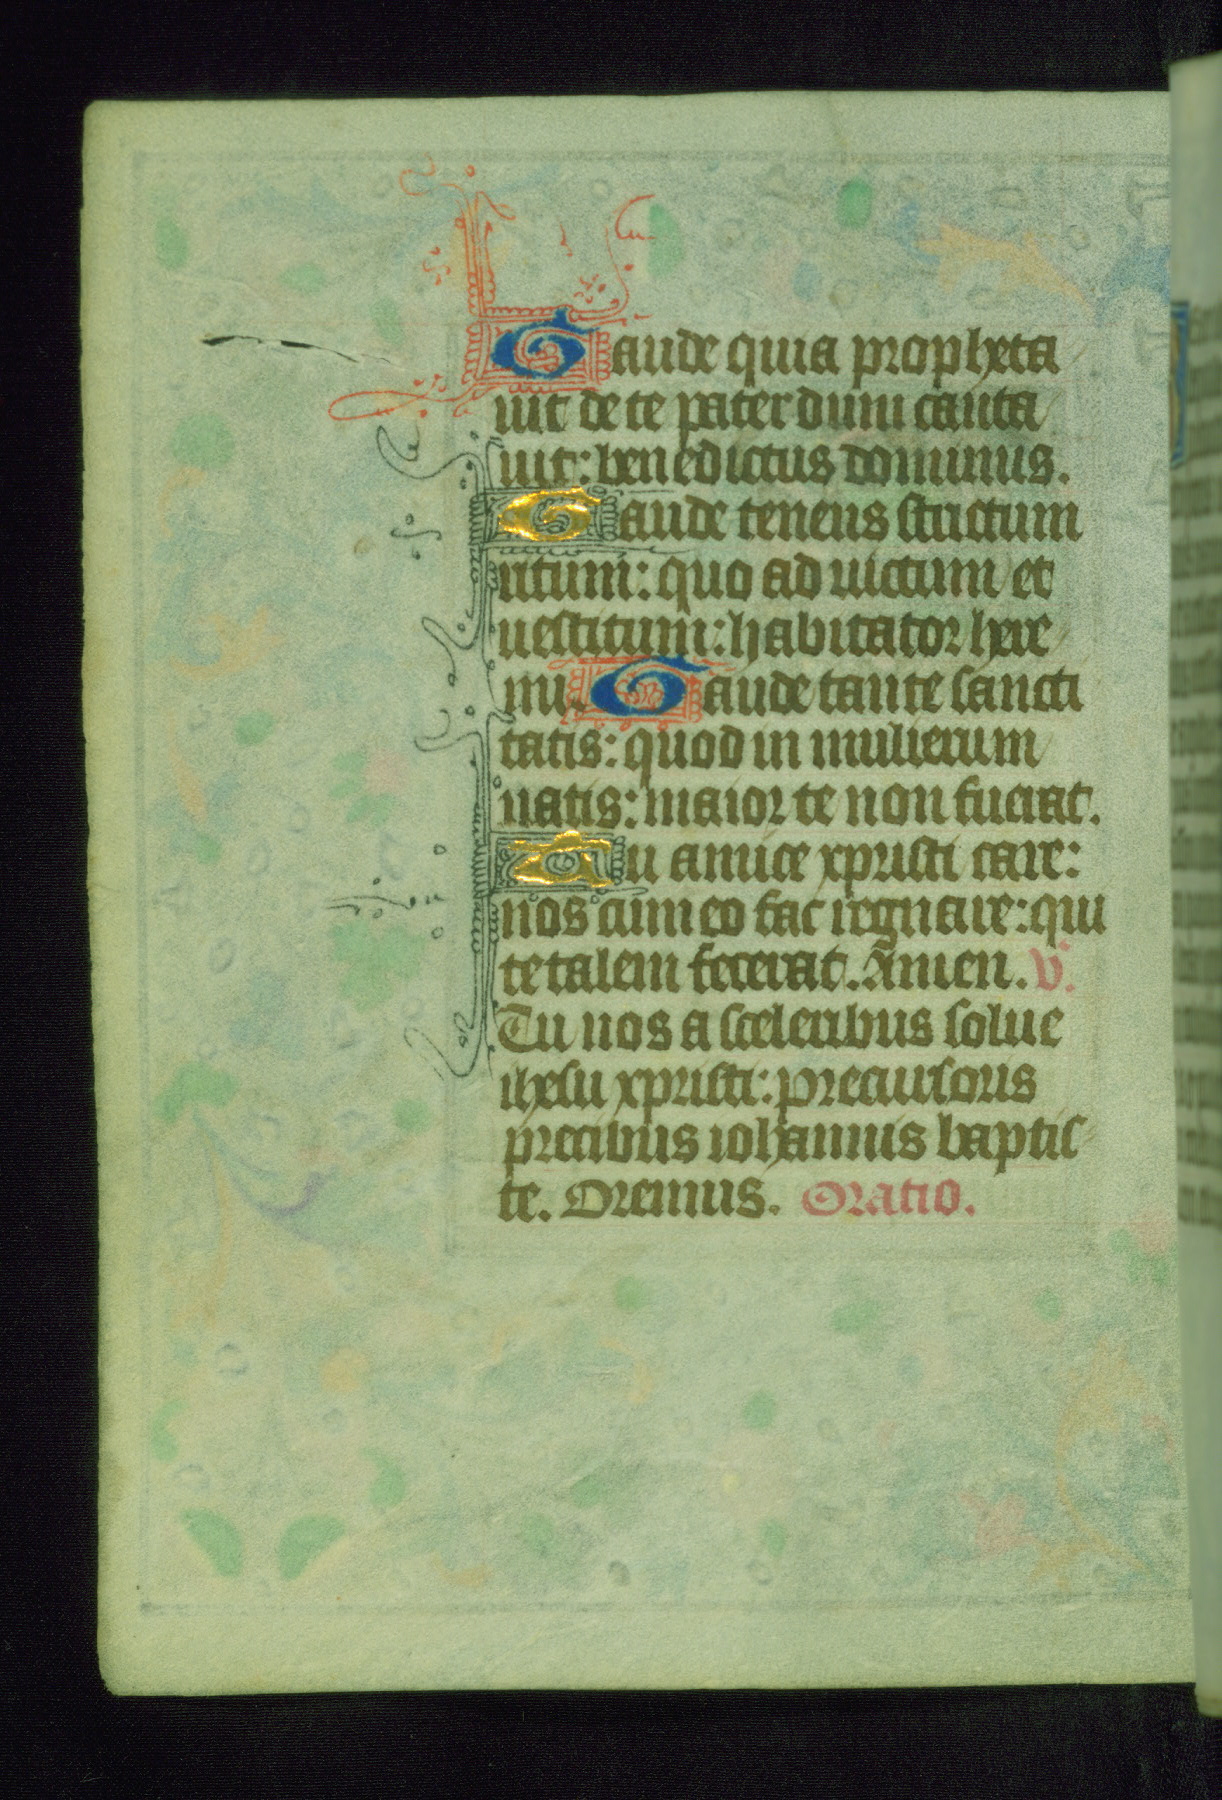 Gaude quia propheta
uit de te pater dum canta
uit: benedictus dominus.
Gaude tenens strictum
ritum: quo ad uictum et
uestitum: habitator here
mi. Gaude tante sancti
tatis: quod in mulierum
natis: maior te non fuerat.
Tu amice xpristi care:
nos cum eo fac regnare: qui
te talem fecerat. Amen. V.
Tu nos a sceleribus solue
ihesu xpristi: precursoris
precibus iohannis baptis
te. Oremus. Oratio.